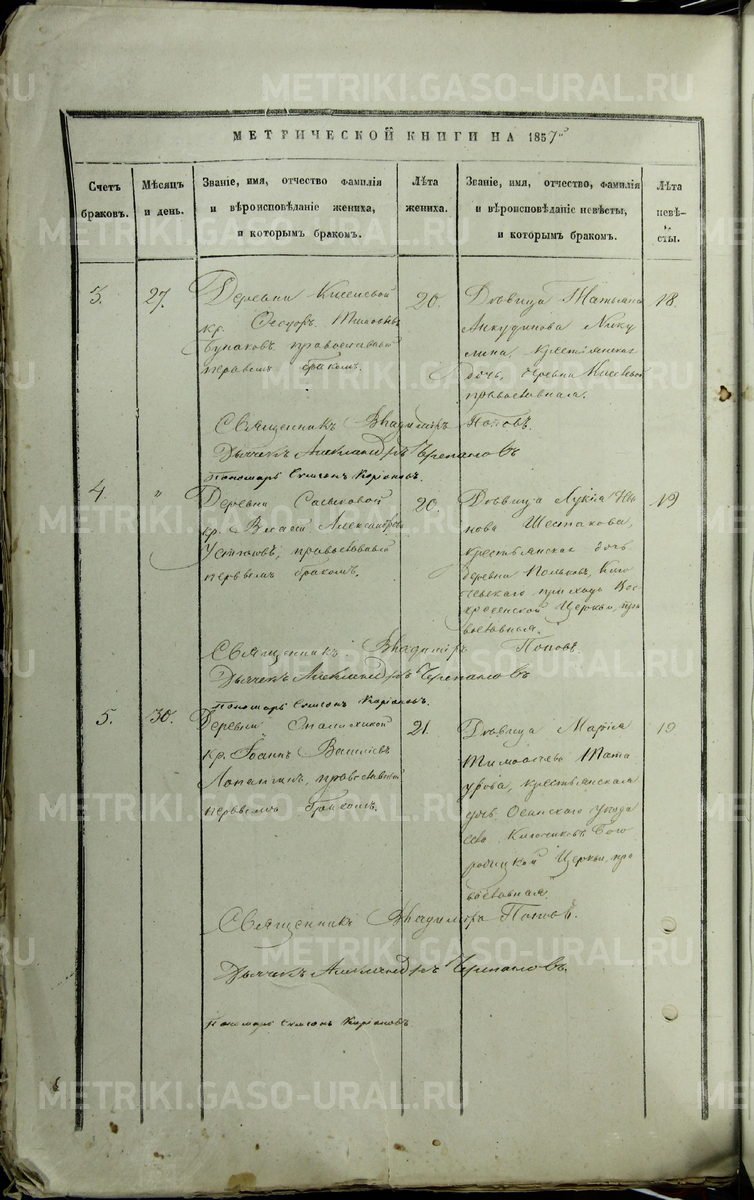 METRIKI.GASO-URAL.RU
МЕТРИЧЕСКОЙ КНИГИ НА 1857й
Счетъ браковъ.
Мѣсяцъ и день.
Званіе, имя, отчество фамилія
и вѣроисповѣданіе жениха,
и которымъ бракомъ.
Лѣта жениха.
Званіе, имя, отчество, фамилія
и вѣроисповѣданіе невѣсты,
и которымъ бракомъ.
Лѣта невѣ-
сты.
3.
27.
Деревни
кр. Ѳеодоръ
православный
первымъ бракомъ.
20.
Дѣвица Татьяна
Анкудинова Нику
лина, крестьянская
дочь, деревни
православная.
18.
Священникъ Владимiръ Поповъ.
Дьячекъ Александръ Черепановъ
Пономарь Симеонъ
4.
"
Деревни
кр. Власій Александровъ
православный
первымъ бракомъ.
20.
Дѣвица Лукія
нова Шестакова,
крестьянская дочь
деревни
прихода Вос
кресенской Церкви, пра
вославная.
19
Священникъ Владимiръ Поповъ.
Дьячекъ Александръ Черепановъ
Пономарь Симеонъ
5.
30.
Деревни
кр. Іоаннъ Василіевъ
православный
первымъ бракомъ.
21.
Дѣвица Марія
Тимоѳеева Тата
урова, крестьянская
дочь Осинскаго уѣзда
село Ключиковъ Бого
родицкой Церкви, пра
вославная.
19
Священникъ Владимiръ Поповъ.
Дьячекъ Александръ Черепановъ.
Пономарь Симеонъ